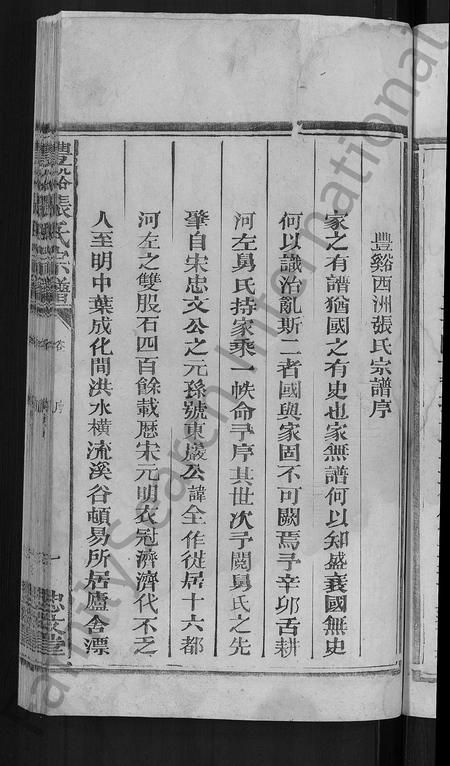 豐谿西洲張氏宗譜序
家之有譜猶國之有史也家無譜何以知盛衰國無史
何以識治亂斯二者國與家固不可闕焉予辛卯舌耕
河左舅氏持家乘一帙命予序其世次予閱舅氏之先
肇自宋忠文公之元孫號東巖公諱全作從居十六都
河左之雙股石四百餘載歷宋元明衣冠濟濟代不乏
人至明中葉成化間洪水橫流溪谷頓易所居廬舍漂
豐谿張氏宗譜
卷
序
一
FamilySearch International